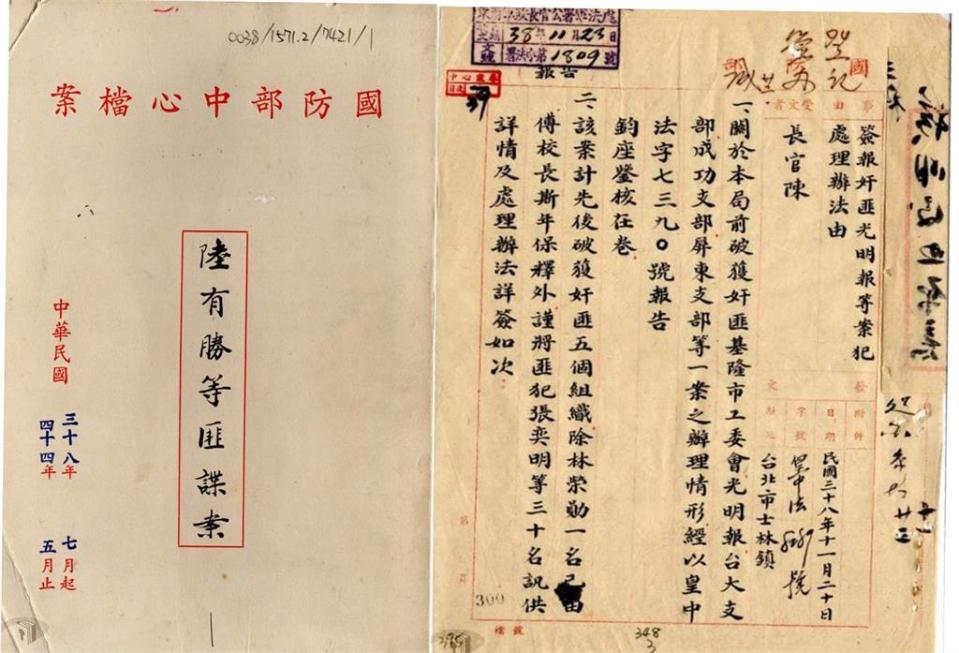 0038/1571.2/7421/1
國防部中心檔案
陸有勝等匪諜案
中華民國
三十八年七月起
四十四年五月止
38年11月23日
署法合第1809號
報告
國防部
事由
簽報奸匪光明報等案犯
處理辦法由
受文者
長官陳
附件
日期
民國三十八年十一月二十日
字號
台北市士林鎮
一、關於本局前破獲奸匪基隆市工委會光明報台大支
部成功支部屏東支部等一案之辦理情形經以皇中
法字七三九〇號報告
鈞座鑒核在卷
二、該案計先後破獲奸匪五個組織除林榮勳一名已由
傅校長斯年保釋外謹將匪犯張奕明等三十名訊供
詳情及處理辦法詳簽如次：
300
348
3